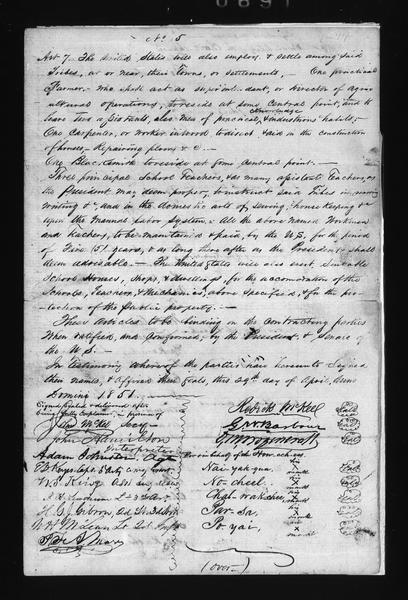 No 5
Art 7. The United States will also employ & settle among said
Tribes, at or near, their Towns, or settlements,— One practical
Farmer, who shall act as superintendent, or director of agric
ultural operations, to reside at some Central point, and to
have two assistants, also men of practical, knowledge & industrious habits;
One Carpenter, or worker in wood to direct & aid in the construction
of houses, Repairing plows & c.—
One Blacksmith to reside at some Central point.—
Three principal School Teachers, & as many assistant Teachers, as
the President may deem proper, to instruct said Tribes in reading
writing &c, and in the domestic arts of sewing, house keeping &c
upon the Manual labor System; All the above named Workmen
and teachers, to be maintained & paid, by the U.S. for the period
of Five (5) years, & as long thereafter as the President shall
deem advisable.— The United States will also erect Suitable
School Houses, Shops, & dwellings, for the accommodation of the
Schools, Teachers, & Mechanics, above specified, & for the pro-
tection of the public property.—
These Articles to be binding on the contracting parties
When ratified, and Confirmed, by the President & Senate of
the U.S.—
In testimony whereof the parties have hereunto Signed
their names, & affixed their Seals, this 29th day of April, Anno
Domini 1851.
Signed, Sealed & delivered after
being fully Explained, in presence of
Redick McKee Seal
John McKee Secy
G W Barbour Seal
John Hamilton
Interpreter
Adam Johnston Agt
For and in behalf of the How-ech-ees
Nai-yak-qua, his x mark Seal
No-cheel, his x mark
Chal-wak-chee, his x mark
Par-sa, his x mark
Po-yai, his x mark
(Over—)